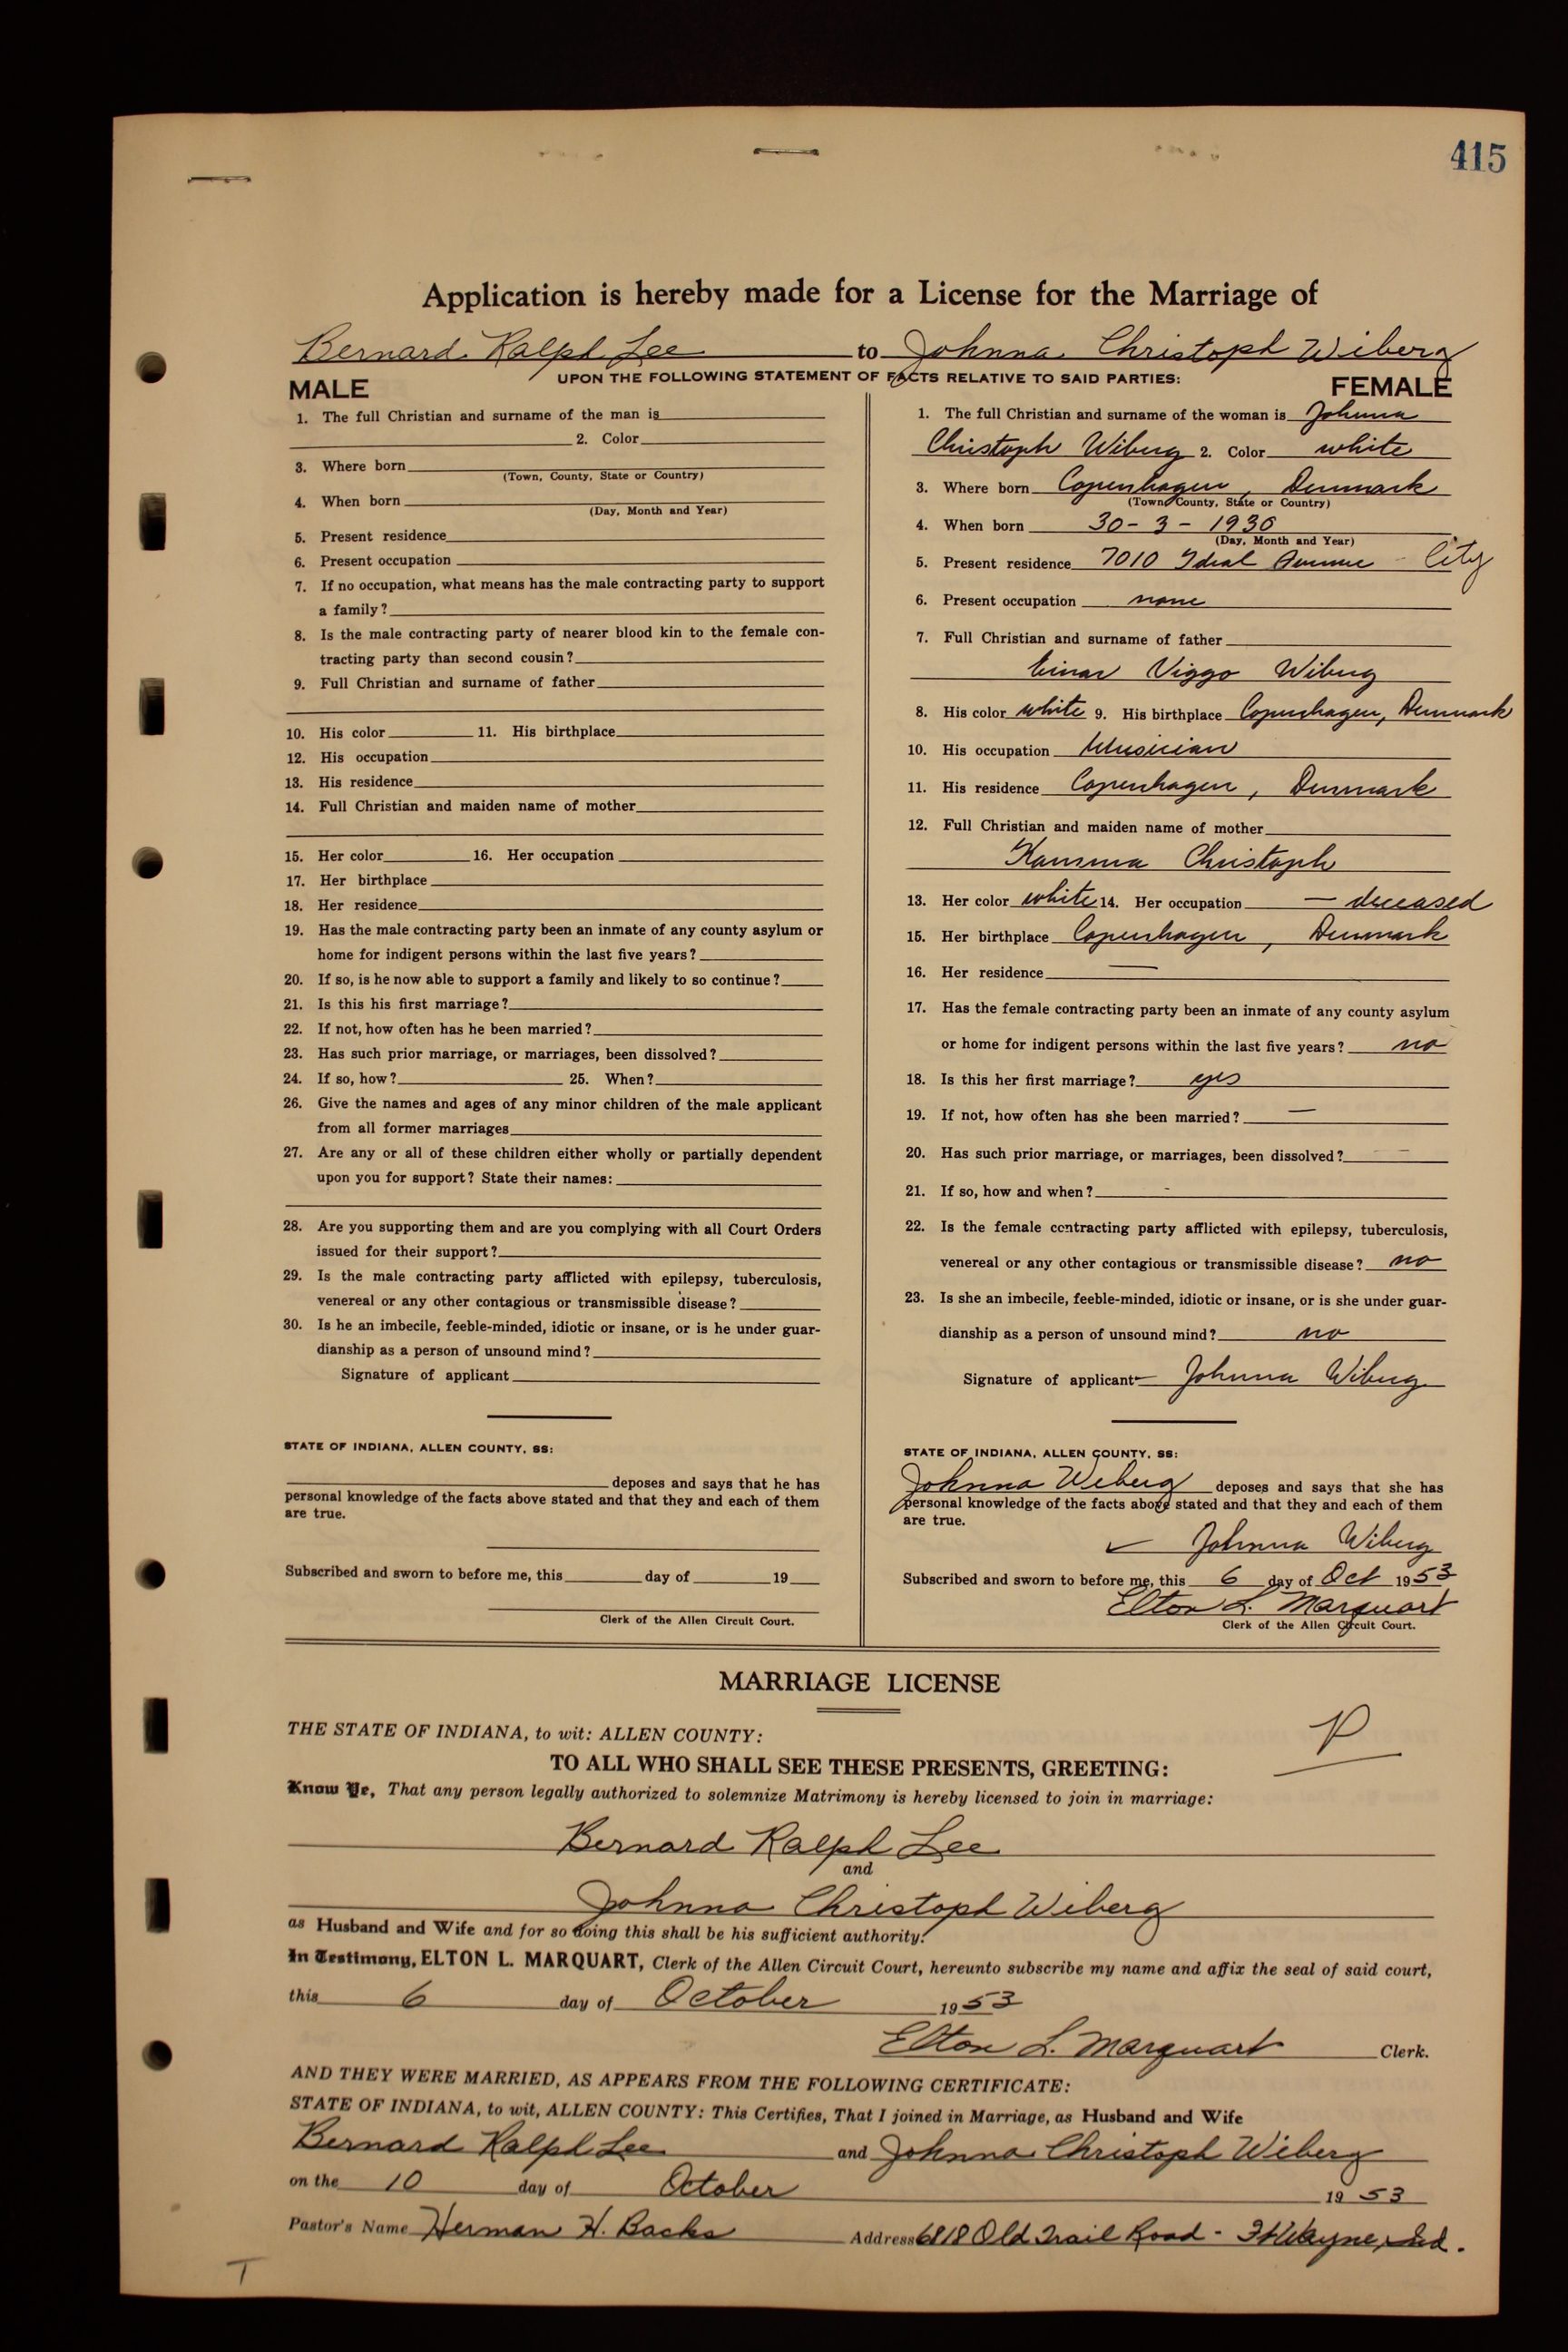 415
Application is hereby made for a License for the Marriage of
Bernard Ralph Lee to Johnna Christoph Wiberg
UPON THE FOLLOWING STATEMENT OF FACTS RELATIVE TO SAID PARTIES:
MALE
1. The full Christian and surname of the man is
2. Color
3. Where born
(Town, County, State or Country)
4. When born
(Day, Month and Year)
5. Present residence
6. Present occupation
7. If no occupation, what means has the male contracting party to support
a family?
8. Is the male contracting party of nearer blood kin to the female con-
tracting party than second cousin?
9. Full Christian and surname of father
10. His color 11. His birthplace
12. His occupation
13. His residence
14. Full Christian and maiden name of mother
15. Her color 16. Her occupation
17. Her birthplace
18. Her residence
19. Has the male contracting party been an inmate of any county asylum or
home for indigent persons within the last five years?
20. If so, is he now able to support a family and likely to so continue?
21. Is this his first marriage?
22. If not, how often has he been married?
23. Has such prior marriage, or marriages, been dissolved?
24. If so, how? 25. When?
26. Give the names and ages of any minor children of the male applicant
from all former marriages
27. Are any or all of these children either wholly or partially dependent
upon you for support? State their names:
28. Are you supporting them and are you complying with all Court Orders
issued for their support?
29. Is the male contracting party afflicted with epilepsy, tuberculosis,
venereal or any other contagious or transmissible disease?
30. Is he an imbecile, feeble-minded, idiotic or insane, or is he under guar-
dianship as a person of unsound mind?
Signature of applicant
STATE OF INDIANA, ALLEN COUNTY, SS:
deposes and says that he has
personal knowledge of the facts above stated and that they and each of them
are true.
Subscribed and sworn to before me, this day of 19
Clerk of the Allen Circuit Court.
FEMALE
1. The full Christian and surname of the woman is Johnna
Christoph Wiberg 2. Color white
3. Where born Copenhagen, Denmark
(Town, County, State or Country)
4. When born 30 - 3 - 1930
(Day, Month and Year)
5. Present residence 7010 Ideal Avenue - City
6. Present occupation none
7. Full Christian and surname of father
Einar Viggo Wiberg
8. His color white 9. His birthplace Copenhagen, Denmark
10. His occupation Musician
11. His residence Copenhagen, Denmark
12. Full Christian and maiden name of mother
Christoph
13. Her color white 14. Her occupation — deceased
15. Her birthplace Copenhagen, Denmark
16. Her residence —
17. Has the female contracting party been an inmate of any county asylum
or home for indigent persons within the last five years? no
18. Is this her first marriage? yes
19. If not, how often has she been married? —
20. Has such prior marriage, or marriages, been dissolved? —
21. If so, how and when? -
22. Is the female contracting party afflicted with epilepsy, tuberculosis,
venereal or any other contagious or transmissible disease? no
23. Is she an imbecile, feeble-minded, idiotic or insane, or is she under guar-
dianship as a person of unsound mind? no
Signature of applicant Johnna Wiberg
STATE OF INDIANA, ALLEN COUNTY, SS:
Johnna Wiberg deposes and says that she has
personal knowledge of the facts above stated and that they and each of them
are true.
✓ Johnna Wiberg
Subscribed and sworn to before me, this 6 day of Oct 1953
Elton L. Marquart
Clerk of the Allen Circuit Court.
MARRIAGE LICENSE
P
THE STATE OF INDIANA, to wit: ALLEN COUNTY:
TO ALL WHO SHALL SEE THESE PRESENTS, GREETING:
Know Ye, That any person legally authorized to solemnize Matrimony is hereby licensed to join in marriage:
Bernard Ralph Lee
and
Johnna Christoph Wiberg
as Husband and Wife and for so doing this shall be his sufficient authority.
In Testimony, ELTON L. MARQUART, Clerk of the Allen Circuit Court, hereunto subscribe my name and affix the seal of said court,
this 6 day of October 1953
Elton L. Marquart Clerk.
AND THEY WERE MARRIED, AS APPEARS FROM THE FOLLOWING CERTIFICATE:
STATE OF INDIANA, to wit, ALLEN COUNTY: This Certifies, That I joined in Marriage, as Husband and Wife
Bernard Ralph Lee and Johnna Christoph Wiberg
on the 10 day of October 1953
Pastor's Name Herman H. Backs Address 6818 Old Trail Road - Ft Wayne, Ind.
T